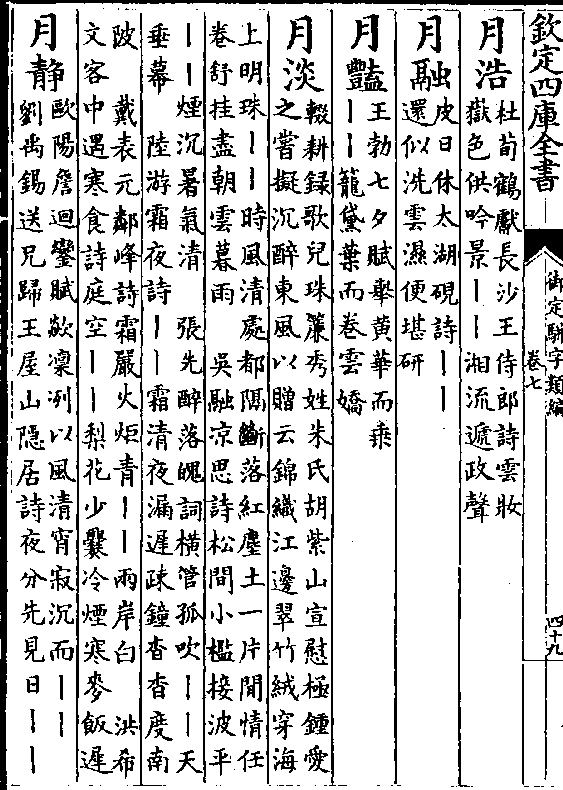 欽定四庫全書
御定駢字類編
卷七
四十九
月浩
杜荀鶴獻長沙王侍郎詩雲妝
嶽色供吟景丨丨湘流遞政聲
月融
皮日休太湖硯詩丨丨
還似洗雲濕便堪研
月豔
王勃七夕賦舉黄華而乗
丨丨籠黛葉而卷雲嬌
月淡
輟耕録歌兒珠簾秀姓朱氏胡紫山宣慰極鍾愛
之嘗擬沉醉東風以贈云錦織江邊翠竹絨穿海
上明珠丨丨時風清處都隔斷落紅塵土一片閒情任
卷舒挂盡朝雲暮雨 吳融凉思詩松間小檻接波平
丨丨煙沉暑氣清 張先醉落魄詞横管孤吹丨丨天
垂幕 陸游霜夜詩丨丨霜清夜漏遲疎鐘杳杳度南
陂 戴表元鄰峰詩霜嚴火炬青丨丨兩岸白 洪希
文客中遇寒食詩庭空丨丨梨花少爨冷煙寒麥飯遲
月静
歐陽詹迴鑾賦欲凜冽以風清宵寂沉而丨丨
劉禹錫送兄歸王屋山隠居詩夜分先見日丨丨丨